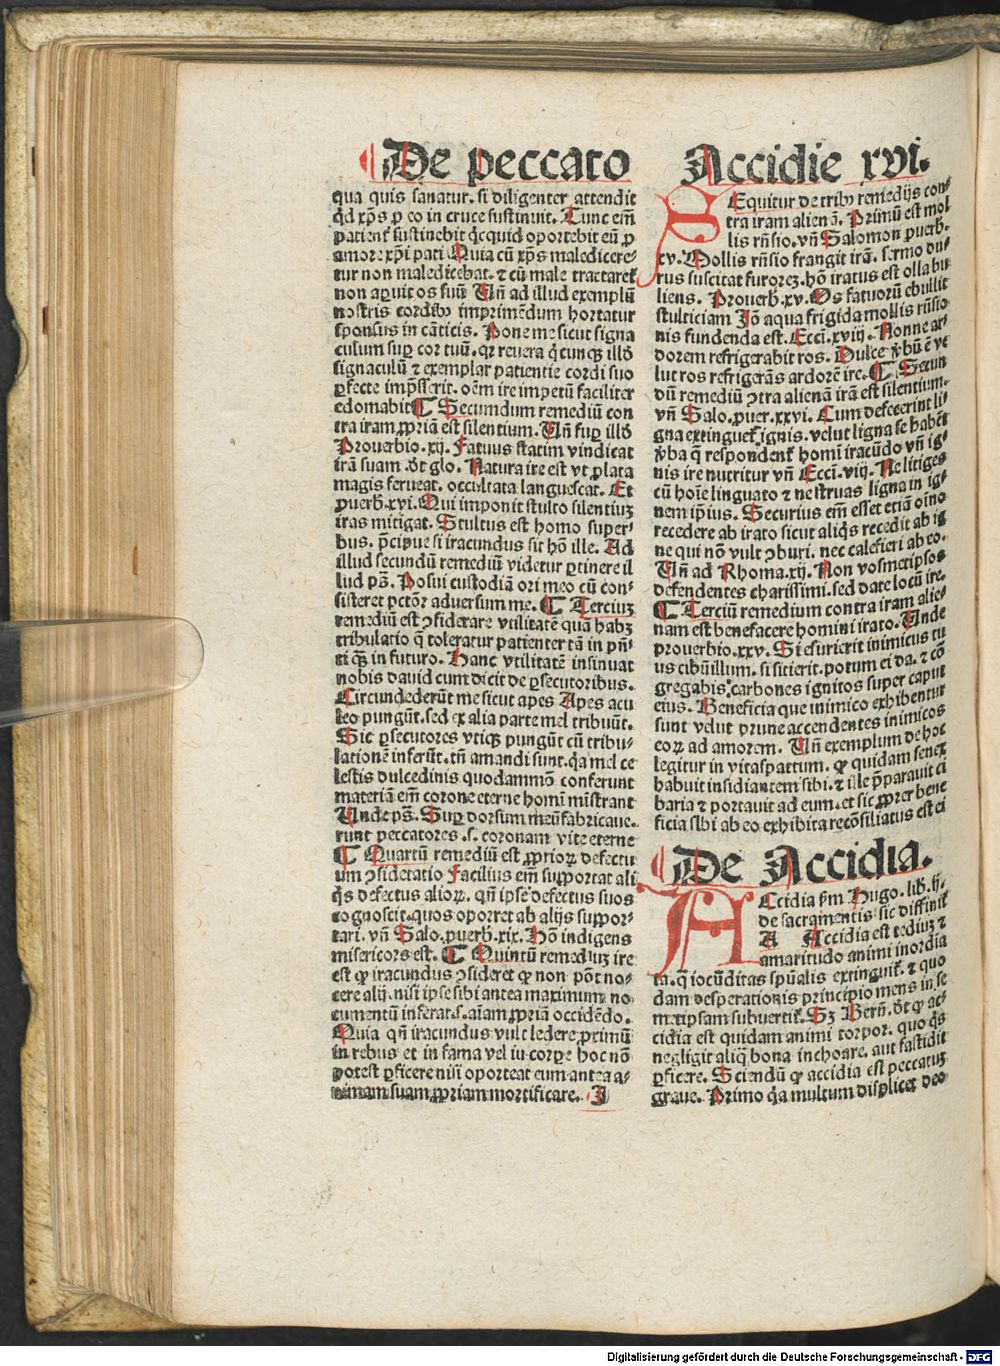 De peccato
qua quis sanatur. si diligenter attendit
qđ xp̄s ꝓ eo in cruce sustinuit. Tunc em̄
patient᷑ sustinebit qͥcquid oportebit eū ꝓ
amore xp̄i pati Quia cū xp̄s maledicere-
tur non maledicebat. ⁊ cū male tractaret᷑
non aꝑuit os suū Uñ ad illud exemplū
nostris cordibꝰ imprimēdum hortatur
sponsus in cāticis. Pone me sicut signa
culum suꝑ cor tuū. qꝛ reuera qͥcunqꝫ illđ
signaculū ⁊ exemplar patientie cordi suo
ꝑfecte imp̄sserit. oēm ire impetū faciliter
edomabit ¶ Secumdum remediū con
tra iram ꝓpriā est silentium. Uñ suꝑ illđ
Prouerbio. xij. Fatuus statim vindicat
irā suam. đt glo. Natura ire est vt ꝓlata
magis ferueat. occultata languescat. Et
ꝓuerb. xvi. Qui imponit stulto silentiuꝫ
iras mitigat. Stultus est homo super-
bus. p̄cipue si iracundus sit hō ille. Ad
illud secundū remediū videtur ꝑtinere il
lud pā. Posui custodiā ori meo cū con-
sisteret pctōr aduersum me. ¶ Terciuꝫ
remediū est ꝯsiderare vtilitatē quā habꝫ
tribulatio q̄ toleratur patienter tā in pñ-
ti qꝫ̄ in futuro. Hanc vtilitatē insinuat
nobis dauid cum dicit de ꝑsecutoribus.
Circundederūt me sicut apes Apes acu
leo pungūt. sed ex alia parte mel tribuūt.
Sic ꝑsecutores vtiqꝫ pungūt cū tribu-
lationē inferūt. tñ amandi sunt. qͥa mel ce
lestis dulcedinis quodammō conferunt
materiā em̄ corone eterne homī mīstrant
Unde pā. Suꝑ dorsum meū fabricaue-
runt peccatores .s. coronam vite eterne
¶ Quartū remediū est ꝓprioꝝ defectu
um ꝯsideratio Facilius em̄ supportat ali
qͥs defectus alioꝝ. qñ ipse defectus suos
cognoscit. quos oporret ab alijs suppor-
tari. vñ Salo. ꝓuerb. xix. Hō indigens
misericors est. ¶ Quintū remediuꝫ ire
est ꝙ iracundus ꝯsideret ꝙ non pōt no-
cere alij. nisi ipse sibi antea maximum no
cumentū inferat .s. aīam ꝓpriā occidēdo.
Quia qñ iracundus vult ledere ꝓximū
in rebus et in fama vel in corpe hoc nō
potest ꝑficere nisi oporteat eum antea a-
nimam suam ꝓpriam mortificare. J
Accidie xvi.
SEquitur de tribꝰ remedijs con-
tra iram alienā. Primū est mol
lis rñsio. vñ Salomon ꝓuerb.
xv. Mollis rñsio frangit irā. sermo du-
rus suscitat furorez. hō iratus est olla bu
liens. Prouerb. xv. Os fatuorū ebullit
stulticiam Jō aqua frigida mollis rñsio
nis fundenda est. Ecci. xviij. Nonne ar-
dorem refrigerabit ros. Dulce ꝟbū ē ve
lut ros refrigerās ardorē ire. ¶ Secun
dū remediū ꝯtra alienā irā est silentium.
vñ Salo. ꝓuer. xxvi. Cum defecerint li-
gna extinguet᷑ ignis. velut ligna se habēt
ꝟba q̄ respondent᷑ homī iracūdo vñ ig-
nis ire nutritur vñ Ecci. viij. Ne litiges
cū hoīe linguato ⁊ ne struas ligna in ig-
nem ip̄ius. Securius em̄ esset etiā oīno
recedere ab irato sicut aliqͥs recedit ab ig
ne qui nō vult ꝯburi. nec calefieri ab eo.
Uñ ad Rhoma. xij. Non vosmetipsos
defendentes charissimi. sed date locū ire.
¶ Terciū remedium contra iram alie-
nam est benefacere homini irato. Unde
prouerbio. xxv. Si esurierit inimicus tu
us cibū illum. si sitierit. potum ei da. ⁊ cō
gregabis carbones ignitos super caput
eius. Beneficia que inimico exhibentur
sunt velut prune accendentes inimicos
eoꝝ ad amorem. Uñ exemplum de hoc
legitur in vitaspattum. ꝙ quidam senex
habuit insidiantem sibi. ⁊ ille p̄parauit ci
baria ⁊ portauit ad eum. et sic ꝓpter bene
ficia sibi ab eo exhibita recōsiliatus est ei
De Accidia.
ACcidia ẜm Hugo. lib. ij.
de sacramentis sic diffinit᷑
A Accidia est tediuꝫ ⁊
amaritudo animi inordīa
ta. q̄ iocūditas spūalis extinguit᷑. ⁊ quo
dam desperationis principio mens in se
metipsam subuertit᷑. Sꝫ Berñ. đt ꝙ ac-
cidia est quidam animi torpor. quo qͥs
negligit aliqͣ bona inchoare. aut fastidit
ꝑficere. Sciendū ꝙ accidia est peccatuꝫ
graue. Primo qͥa multum displicet deo
Digitalisierung gefördert durch die Deutsche Forschungsgemeinschaft - DFG